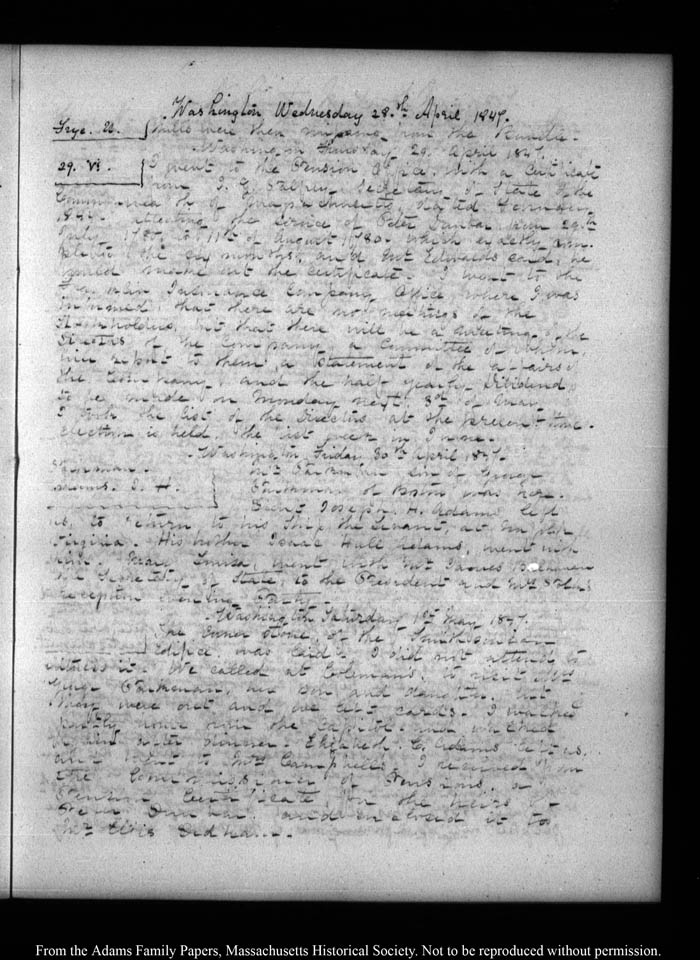 Washington Wednesday 28.th April 1847.
Frye. N. were then missing from the Bundle.
Washington Thursday 29. April 1847.
29. VI. I went to the Pension Office, with a Certificate
from J. G. Palfrey Secretary of State of the
Commonwealth of Massachusetts, dated
1847. attesting the service of Peter Dunbar from 29.th
July 1780 to 11th of August 1780. which exactly com-
pleted the six months, and Mr Edwards said, he
would make out the Certificate. I went to the
Franklin Insurance Company Office, where I was
informed, that there are not meetings of the
Stockholders, but that there will be a meeting of the
Directors of the Company, a Committee of whom,
will report to them, a Statement of the affairs of
the Company, and the half yearly Dividend,
to be made on Monday next, 3d. of May.
I took the list of the Directors at the present time.
election is held, the first week in June.
Washington Friday 30.th April 1847.
Mr Parkman son of George
Adams. I. H. Parkman of Boston was here.
Lieut Joseph. H. Adams left
us, to return to his Ship the Levant, at Norfolk
Virginia. His brother Isaac Hull Adams, went with
him. Mary Louisa, went with Mr James Buchanan
the Secretary of State, to the President and Mrs Polk's
reception evening Party.
Washington Saturday 1st May 1847.
The Corner Stone, of the Smithsonian
Edifice, was laid. I did not attend to
witness it. We called at Colemans, to visit Mr
George Parkman, his son and daughter, but
they were out and we left cards. I walked
partly home from the Capitol. and walked
again after dinner. Elizabeth. C. Adams left us.
and went to Mrs Campbells. I received from
the Commissioner of Pensions, a
Pension Certificate, for the heirs of
Peter Dunbar. and enclosed it to
Mr
From the Adams Family Papers, Massachusetts Historical Society. Not to be reproduced without permission.